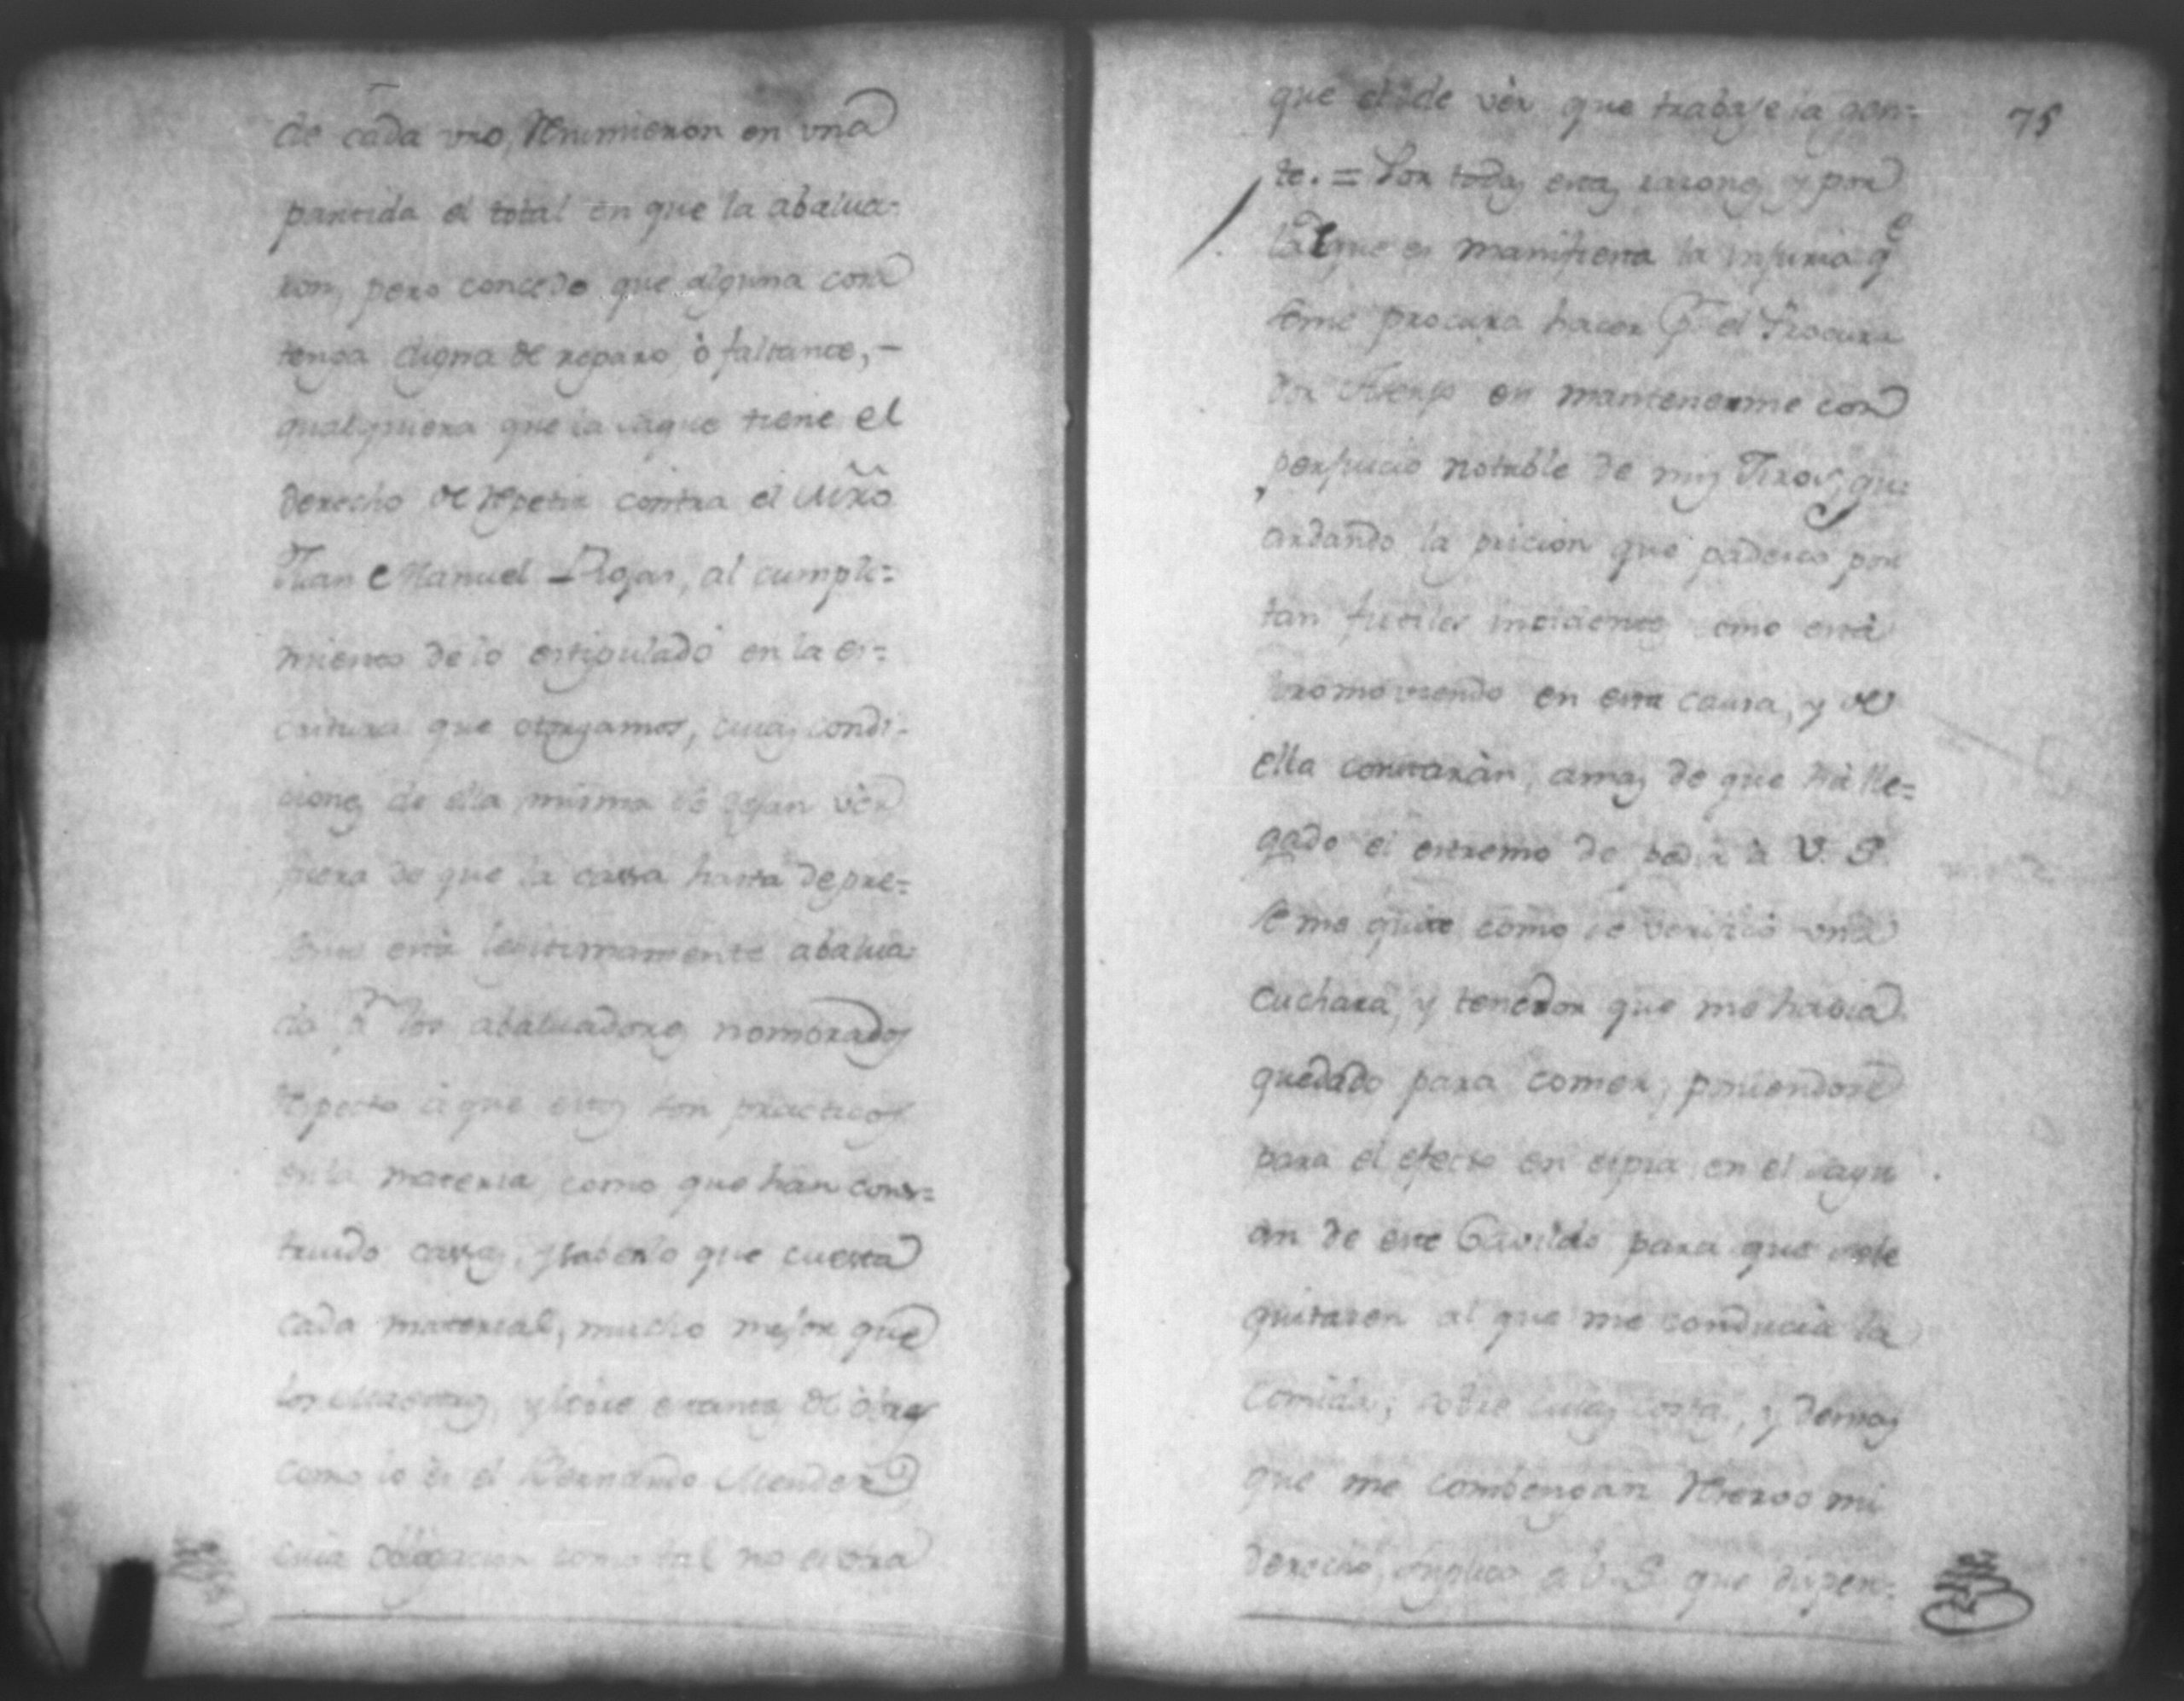 de cada uno, reumieron en una
partida el total en que la abalua-
ron, pero concedo que alguna cosa
tenga digna de reparo, ò faltante, –
qualquiera que la saque tiene el
derecho de repetir contra el Mrõ
Juan Manuel Rojas, al cumpli=
miento de lo estipulado en la es=
critura que otorgamos, cuias condi-
ciones de ella misma se dejan vèr
fuera de que la cassa hasta de pre=
sente està legitimamente abalua-
da pr. los abaluadores nombrados
respecto à que estos son practicos
en la materia, como que han cons=
truido casas, y saben lo que cuesta
cada material, mucho mejor que
los Maestros, y sobre estante de obras
como lo es el Bernardo Mendez
cuia obligacion como tal no es otra
75
que el de vèr que trabaje la gen=
te. = Por todas estas razones, y por
la que es manifiesta la injuria qe
se me procura hacer pr. el Procura
dor en mantenerme con
perjuicio notable de mis giros, gu=
ardando la pricion que padesco por
tan futiles incidentes como està
promoviendo en esta causa, y de
ella constaràn, amas de que hà lle=
gado el estremo de pedir à V. S.
se me quite como se verificò una
cuchara, y tenedor que me havia
quedado para comer, poniendose
para el efecto en espia en el sagu
an de este Cavildo para que se le
quitasen al que me conducia la
comida; sobre cuias cosas, y demas
que me combengan reservo mi
derecho, suplico a V. S. que dispen=